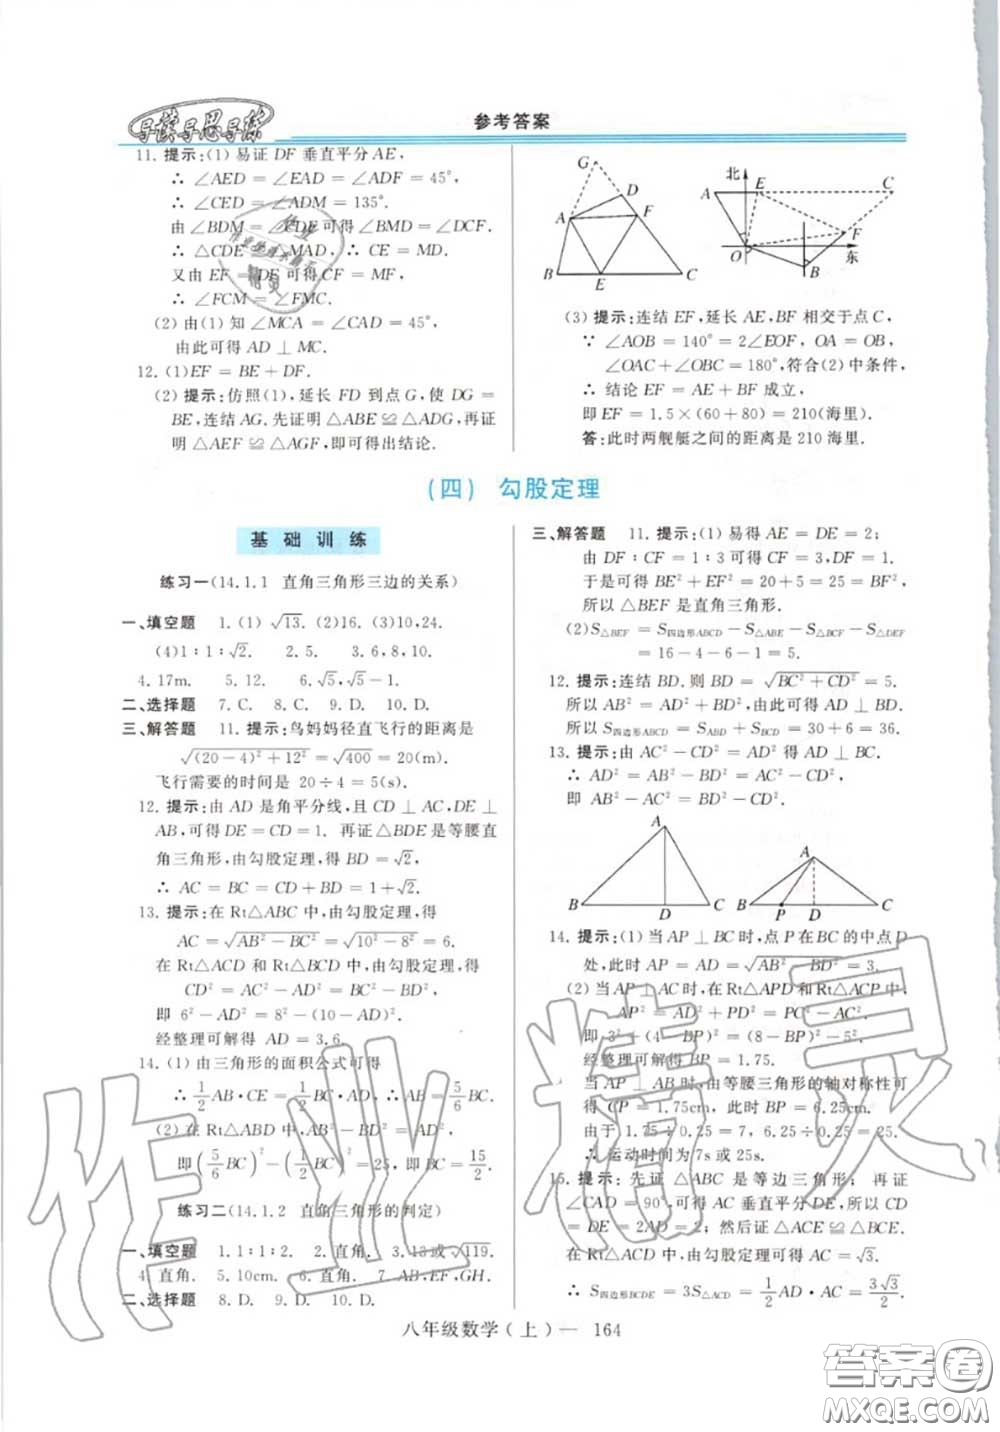 导读导思导练
参考答案
11. 提示:(1) 易证 DF 垂直平分 AE,
∴ ∠AED = ∠EAD = ∠ADF = 45°,
∴ ∠CED = ∠ADM = 135°.
由 ∠BDM = ∠CDE 可得 ∠BMD = ∠DCF.
∴ △CDE ≌ △MAD, ∴ CE = MD.
又由 EF = DE 可得 CF = MF,
∴ ∠FCM = ∠FMC.
(2) 由(1) 知 ∠MCA = ∠CAD = 45°,
由此可得 AD ⊥ MC.
12. (1)EF = BE + DF.
(2) 提示:仿照(1),延长 FD 到点 G,使 DG =
BE,连结 AG. 先证明 △ABE ≌ △ADG,再证
明 △AEF ≌ △AGF,即可得出结论.
G
D
A
F
B
E
C
北
A
E
C
F
O
东
B
(3) 提示:连结 EF,延长 AE,BF 相交于点 C,
∵ ∠AOB = 140° = 2∠EOF, OA = OB,
∠OAC + ∠OBC = 180°,符合(2)中条件,
∴ 结论 EF = AE + BF 成立,
即 EF = 1.5×(60+80) = 210(海里).
答:此时两舰艇之间的距离是 210 海里.
(四) 勾股定理
基础训练
练习一(14.1.1 直角三角形三边的关系)
一、填空题 1. (1) √13. (2)16. (3)10,24.
(4)1∶1∶√2. 2. 5. 3. 6,8,10.
4. 17m. 5. 12. 6. √5, √5 − 1.
二、选择题 7. C. 8. C. 9. D. 10. D.
三、解答题 11. 提示:鸟妈妈径直飞行的距离是
√((20−4)² + 12²) = √400 = 20(m).
飞行需要的时间是 20÷4 = 5(s).
12. 提示:由 AD 是角平分线,且 CD ⊥ AC,DE ⊥
AB,可得 DE = CD = 1. 再证△BDE 是等腰直
角三角形,由勾股定理,得 BD = √2,
∴ AC = BC = CD + BD = 1+√2.
13. 提示:在 Rt△ABC 中,由勾股定理,得
AC = √(AB² − BC²) = √(10² − 8²) = 6.
在 Rt△ACD 和 Rt△BCD 中,由勾股定理,得
CD² = AC² − AD² = BC² − BD²,
即 6² − AD² = 8² − (10 − AD)².
经整理可解得 AD = 3.6.
14. (1) 由三角形的面积公式可得
∴ 1/2 AB · CE = 1/2 BC · AD, AB = 5/6 BC.
(2) 在 Rt△ABD 中, AB² − BD² = AD²,
即 (5/6 BC)² − (1/2 BC)² = 25, 即 BC = 15/2.
练习二(14.1.2 直角三角形的判定)
一、填空题 1. 1∶1∶2. 2. 直角. 3. 13或√119.
4. 直角. 5. 10cm. 6. 直角. 7. AB,EF,GH.
二、选择题 8. D. 9. D. 10. D.
三、解答题 11. 提示:(1) 易得 AE = DE = 2;
由 DF∶CF = 1∶3 可得 CF = 3,DF = 1.
于是可得 BE² + EF² = 20+5 = 25 = BF²,
所以 △BEF 是直角三角形.
(2)S△BEF = S四边形ABCD − S△ABE − S△BCF − S△DEF
= 16−4−6−1 = 5.
12. 提示:连结 BD. 则 BD = √(BC² + CD²) = 5.
所以 AB² = AD² + BD²,由此可得 AD ⊥ BD.
所以 S四边形ABCD = S△ABD + S△BCD = 30+6 = 36.
13. 提示:由 AC² − CD² = AD² 得 AD ⊥ BC.
∴ AD² = AB² − BD² = AC² − CD²,
即 AB² − AC² = BD² − CD².
A
B
D
C
A
B
P
D
C
14. 提示:(1) 当 AP ⊥ BC 时,点 P 在 BC 的中点 D
处,此时 AP = AD = √(AB² − BD²) = 3.
(2) 当 AP ⊥ AC 时,在 Rt△APD 和Rt△ACP 中,
AP² = AD² + PD² = PC² − AC²,
即 3² + (4 − BP)² = (8 − BP)² − 5².
经整理可解得 BP = 1.75.
当 AP ⊥ AB 时,由等腰三角形的轴对称性可
得 CP = 1.75cm, 此时 BP = 6.25cm.
由于 1.75÷0.25 = 7, 6.25÷0.25 = 25.
∴ 运动时间为 7s 或 25s.
15. 提示: 先证 △ABC 是等边三角形; 再证
∠CAD = 90°,可得 AC 垂直平分 DE,所以 CD
= DE = 2AD = 2; 然后证 △ACE ≌ △BCE.
在 Rt△ACD 中,由勾股定理可得 AC = √3.
∴ S四边形BCDE = 3S△ACD = 1/2 AD · AC = 3√3/2.
八年级数学(上)— 164
作业精灵
答案卷
MXQE.COM